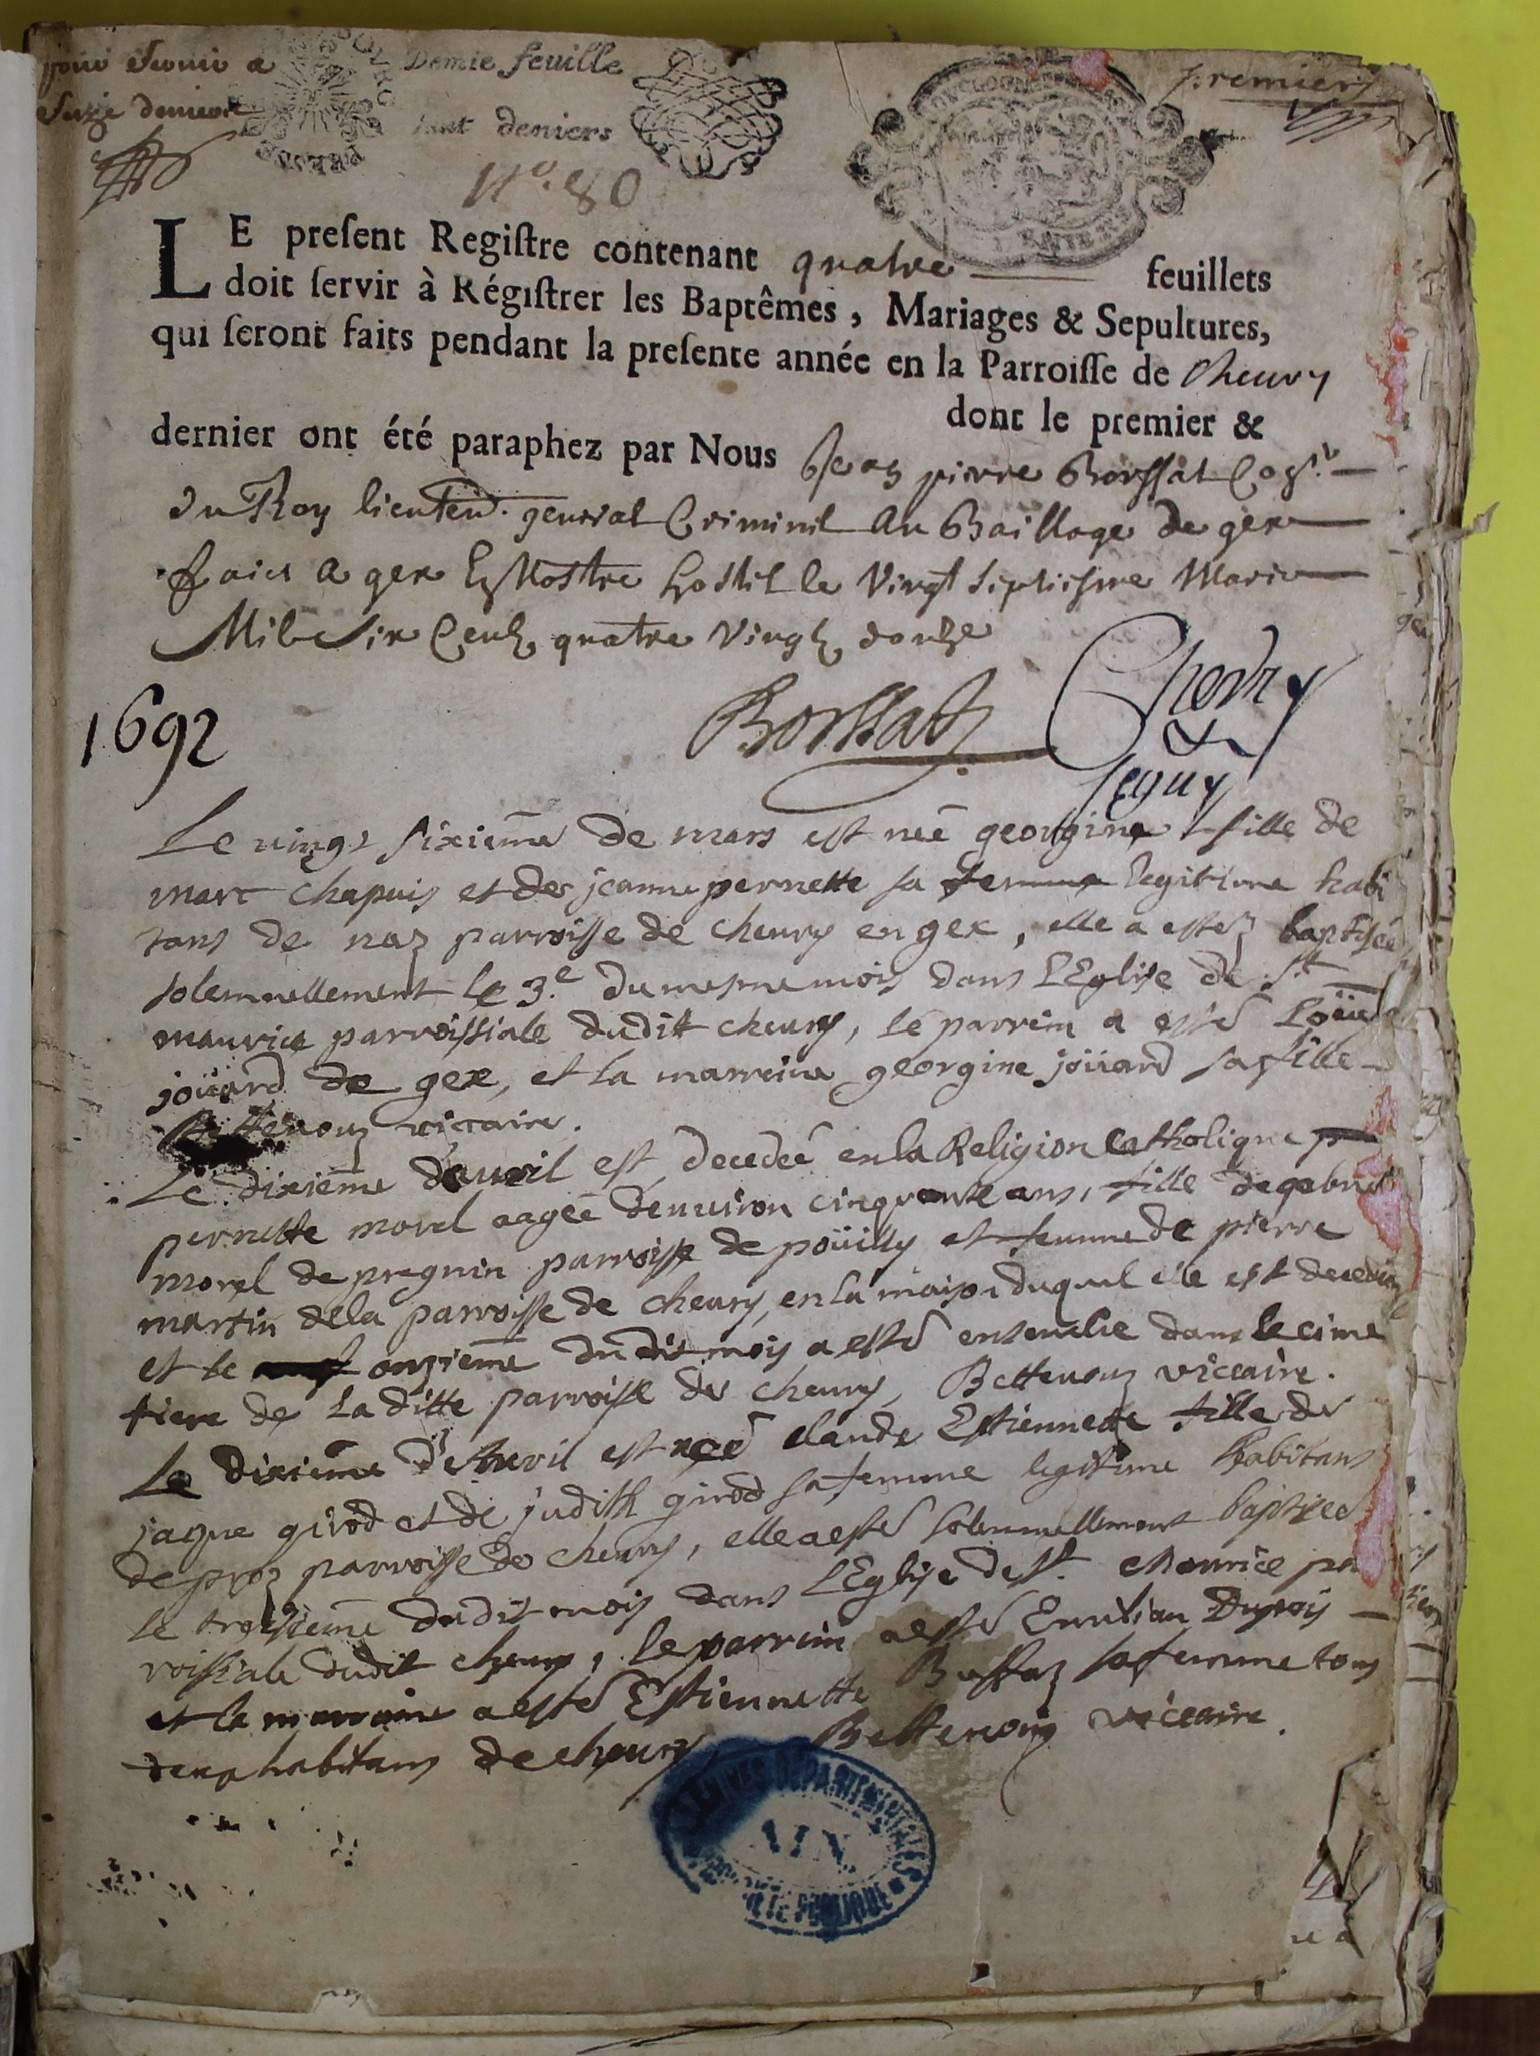 Demie feuille
premier
huit deniers
N°. 80
LE preſent Regiſtre contenant quatre feuillets
doit ſervir à Régiſtrer les Baptêmes, Mariages & Sepultures,
qui ſeront faits pendant la preſente année en la Parroiſſe de Cheury
dont le premier &
dernier ont été paraphez par Nous Jean pierre Borssat Cons.r
du Roy lieuten. general Criminel Au Bailliage de gex
faict a gex En Nostre hostel le Vingt septiesme Mars
Mil Six Centz quatre Vingtz douze
1692
Borssat
Chevry
&
Segny
Le vingt sixiem̄e de mars est neé georgine fille de
marc chapuis et de jeanne pernette sa femme legitime habi
tans de naz parroisse de cheury en gex, elle a estez baptisée
solemnellement le 3.e du mesme mois dans l'Eglise de St
maurice parroissiale dudit cheury, le parrein a esté Loüis
joüard de gex, et la marreine georgine joüard sa fille
Bettenouz viccaire.
Le dixiem̄e d'auril est decedeé en la Religion Catholique
pernette morel aageé d'enuiron cinquante ans, fille de gabriel
morel de pregnin parroisse de poüilly et femme de pierre
martin de la parroisse de cheury, en la maison duquel elle est decedée
et le onziem̄e dudit mois a esté enseuelie dans le cime
tiere de La ditte parroisse de cheury, Bettenouz viccaire.
Le dixiem̄e d'Auril est neé claude Estiennette fille de
jaque girod et de judith girod sa femme legitime habitans
de proz parroisse de cheury, elle a esté solemnellement baptiseé
le troisiem̄e dudit mois dans l'Eglise de St. Maurice par
roissiale dudit cheury, le parrein a esté Emilian Dupois
et la marraine a esté Estiennette Bussaz sa femme tous
deux habitans de cheury, Bettenouz viccaire.
ARCHIVES DEPARTEMENTALES
AIN